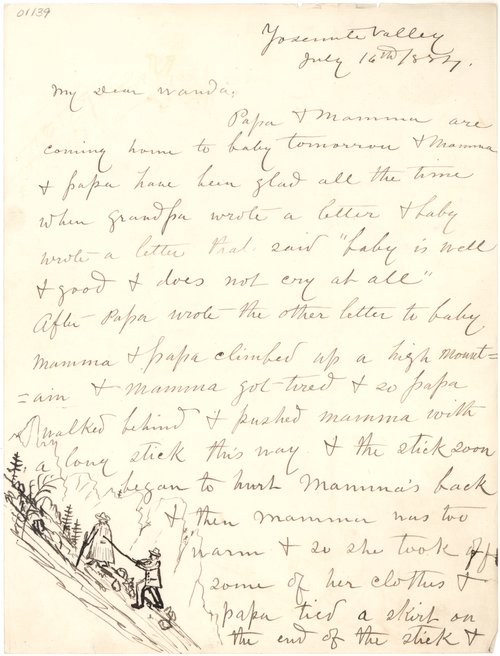 01139
Yosemite Valley
July 16th 1884.
My Dear Wanda;
Papa & Mamma are
coming home to baby tomorrow & Mamma
& papa have been glad all the time
when grandpa wrote a letter & baby
wrote a letter that said "baby is well
& good & does not cry at all"
After Papa wrote the other letter to baby
mamma & papa climbed up a high mount=
=ain & mamma got tired & so papa
walked behind & pushed mamma with
a long stick this way. & the stick soon
began to hurt Mamma's back
& then mamma was too
warm & so she took off
some of her clothes &
papa tied a skirt on
the end of the stick &